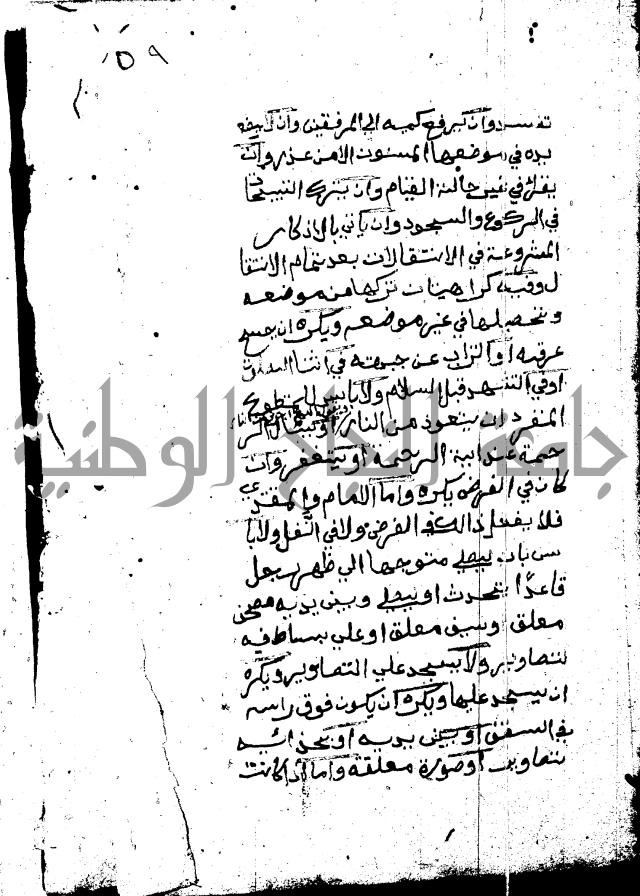 ٥٩
تفسد وان يرفع كميه الي المرفقين وان لا يضع
يده في موضعها المسنون الا من عذر وان
يقرا في غير حالة القيام وان يترك التسبيحات
في الركوع والسجود وان ياتي بالاذكار
المشروعة في الانتقالات بعد تمام الانتقا
ل وفيه كراهيتان تركها من موضعه
وتحصيلها في غير موضعه ويكره ان يمسح
عرقه او التراب عن جبهته في اثنا الصلاة
او في التشهد قبل السلام ولا باس للمتطوع
المنفرد ان يتعوذ من النار او يسال الر
حمة عند اية الرحمة او يستغفر وان
كان في الفرض يكره واما الامام والمقتدي
فلا يفعل ذالك في الفرض ولا في النفل ولا با
س بان يصلي متوجها الي ظهر رجل
قاعدا يتحدث او يصلي وبين يديه مصحف
معلق وسيف معلق او علي بساط فيه
تصاوير ولا يسجد علي التصاوير ويكره
ان يسجد عليها ويكره ان يكون فوق راسه
في السقف او بين يديه او بحذائيه
تصاوير او صورة معلقة واما اذا كانت
جامعة النجاح الوطنية